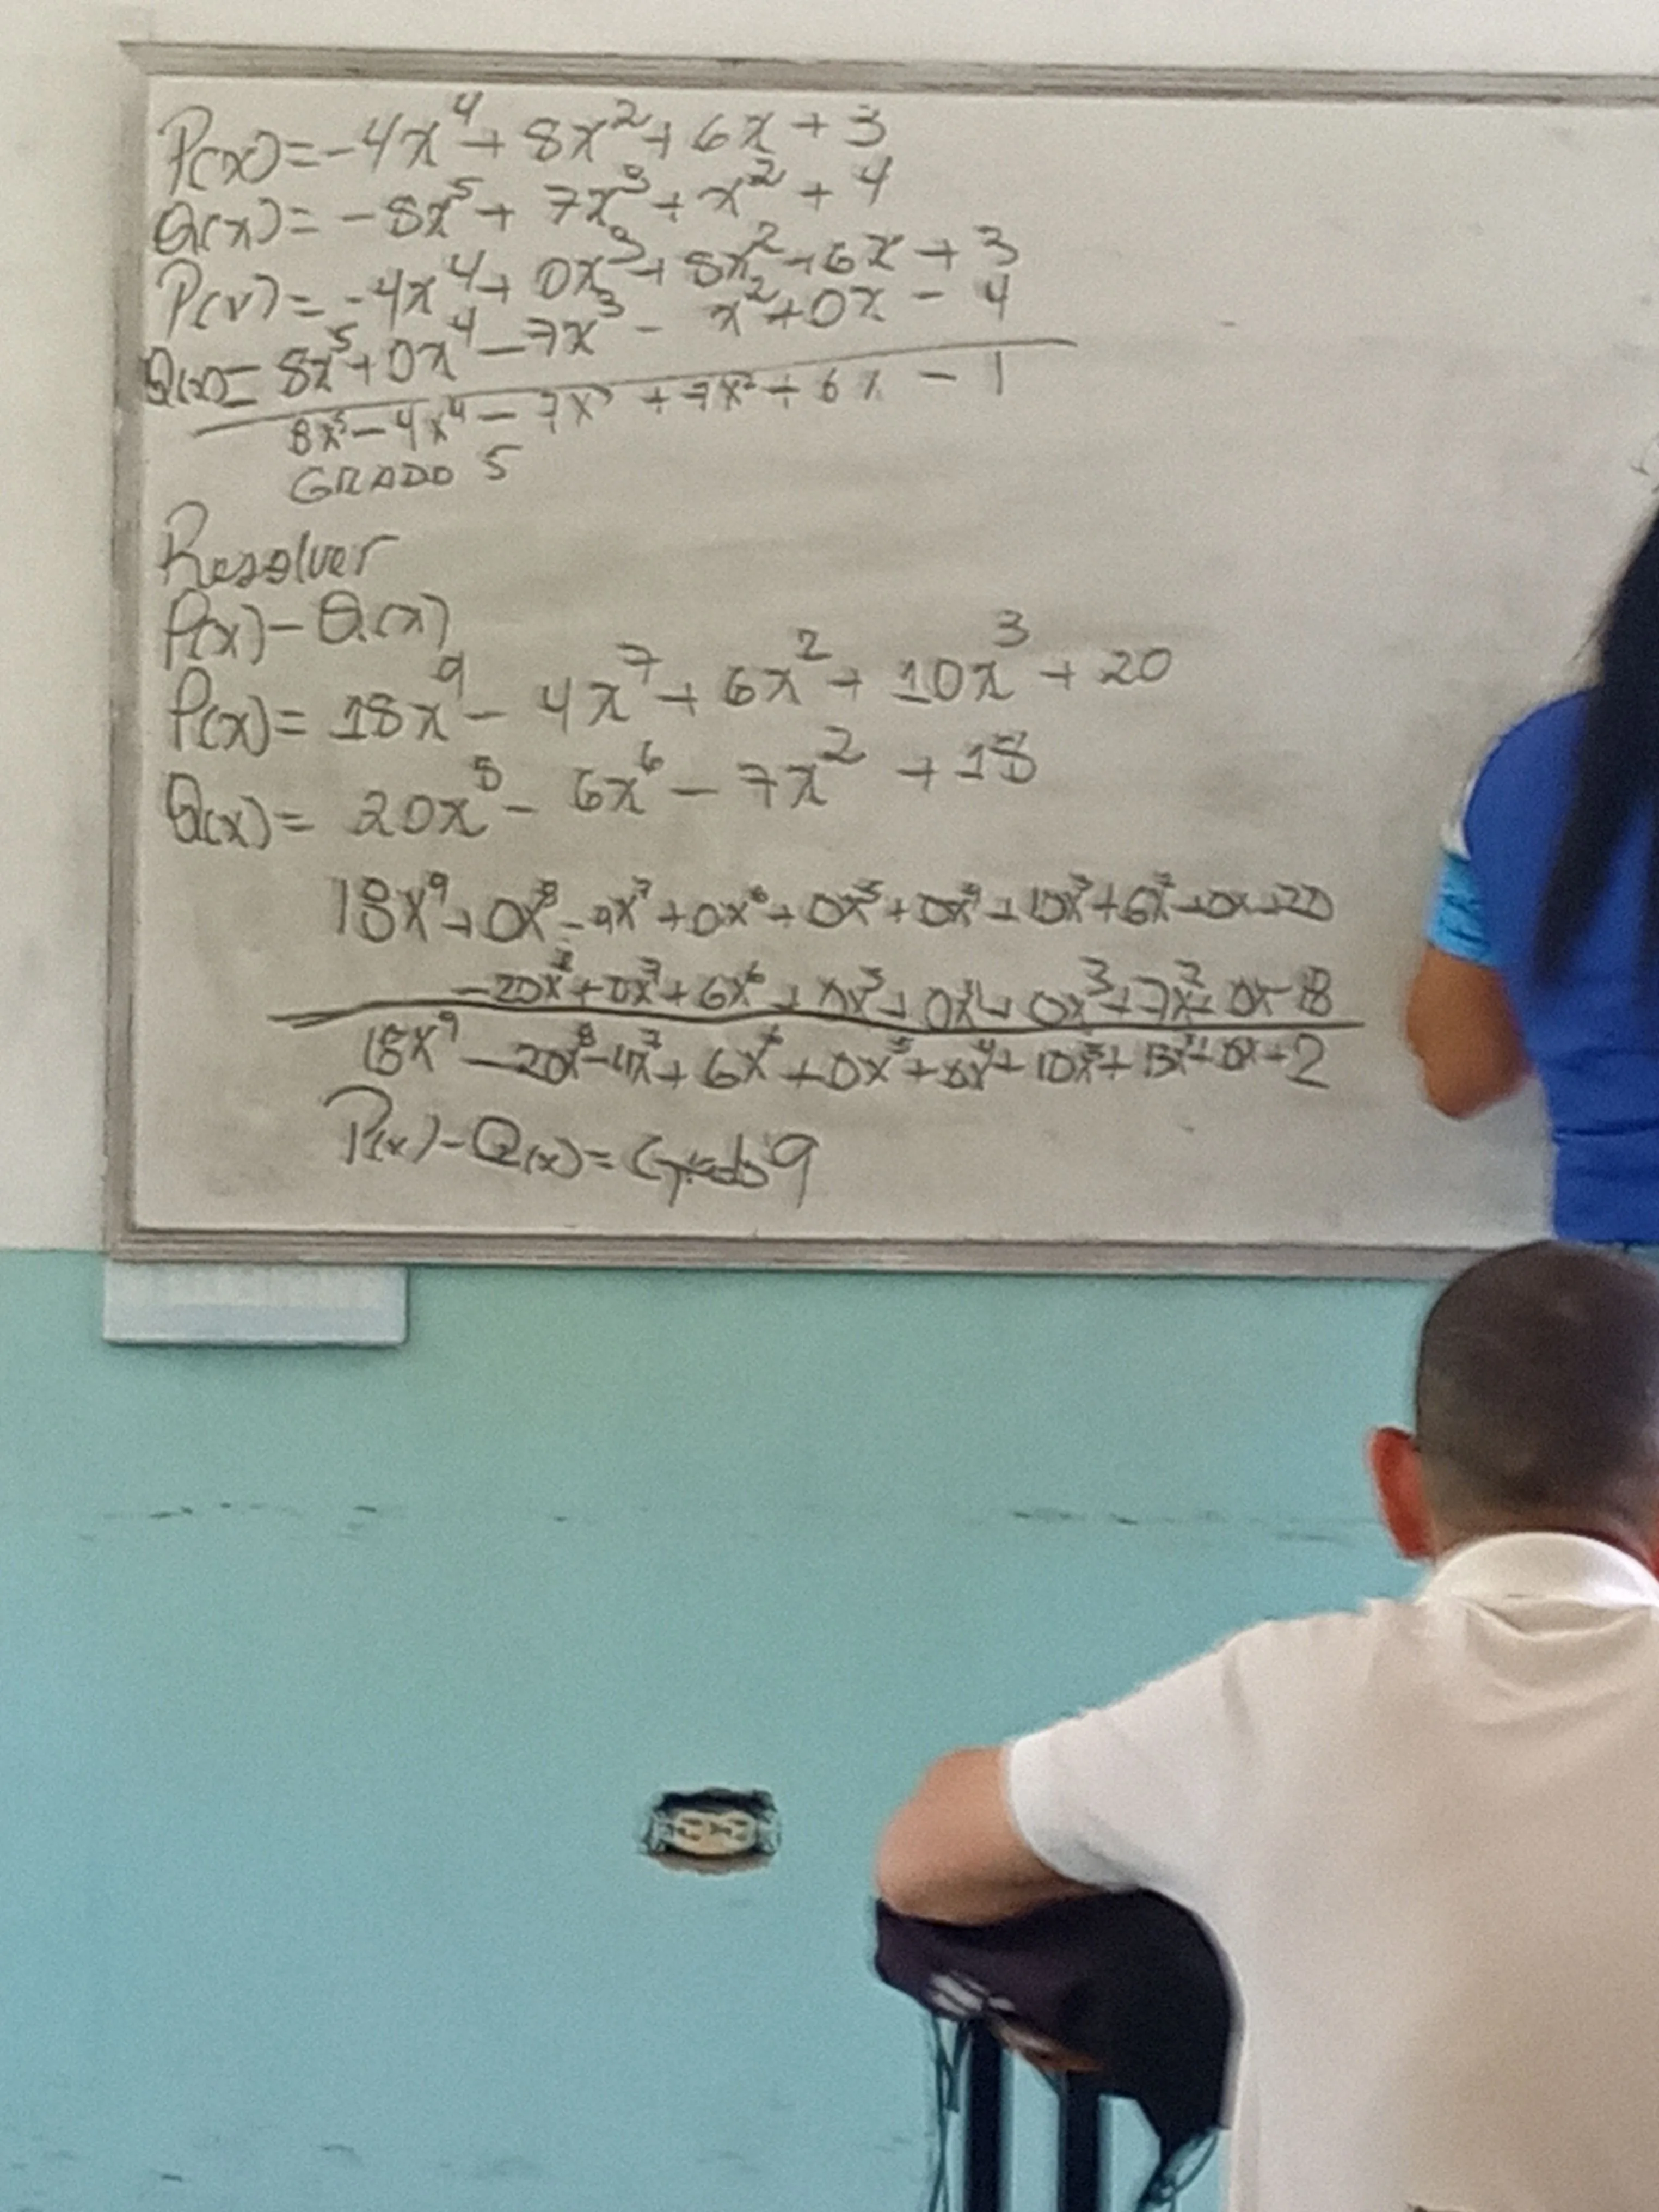 P(x)=-4x⁴+8x²+6x+3
Q(x)=-8x⁵+7x³+x²+4
P(x)=-4x⁴+0x³+8x²+6x+3
Q(x)=8x⁵+0x⁴-7x³-x²+0x-4
8x⁵-4x⁴-7x³+7x²+6x-1
GRADO 5
Resolver
P(x)-Q(x)
P(x)=18x⁹-4x⁷+6x²+10x³+20
Q(x)=20x⁸-6x⁶-7x²+18
18x⁹+0x⁸-4x⁷+0x⁶+0x⁵+0x⁴+10x³+6x²+0x+20
-20x⁸+0x⁷+6x⁶+0x⁵+0x⁴+0x³+7x²+0x-18
18x⁹-20x⁸-4x⁷+6x⁶+0x⁵+0x⁴+10x³+13x²+0x+2
P(x)-Q(x)=Grado 9